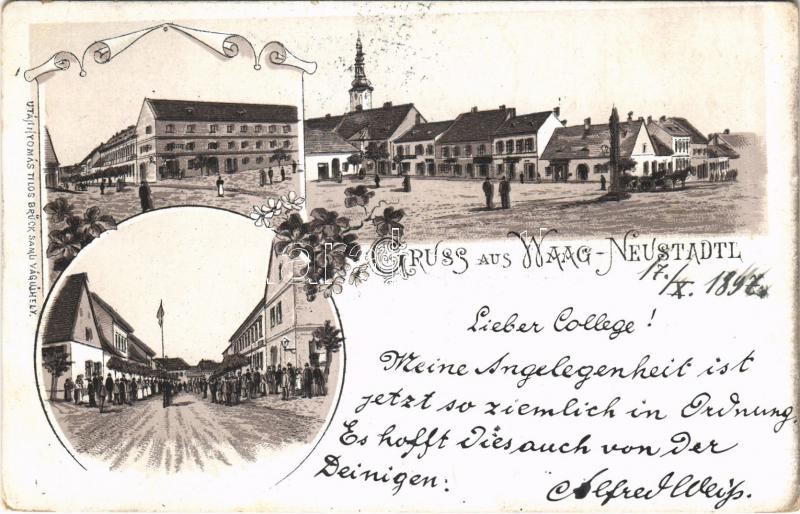 UTÁNNYOMÁS TILOS BRÜCK SAMU VÁGUJHELY.
GRUSS AUS WAAG-NEUSTADTL
17./X. 1897.
Lieber College!
Meine Angelegenheit ist
jetzt so ziemlich in Ordnung.
Es hofft dies auch von der
Deinigen:
Alfred Weiß.